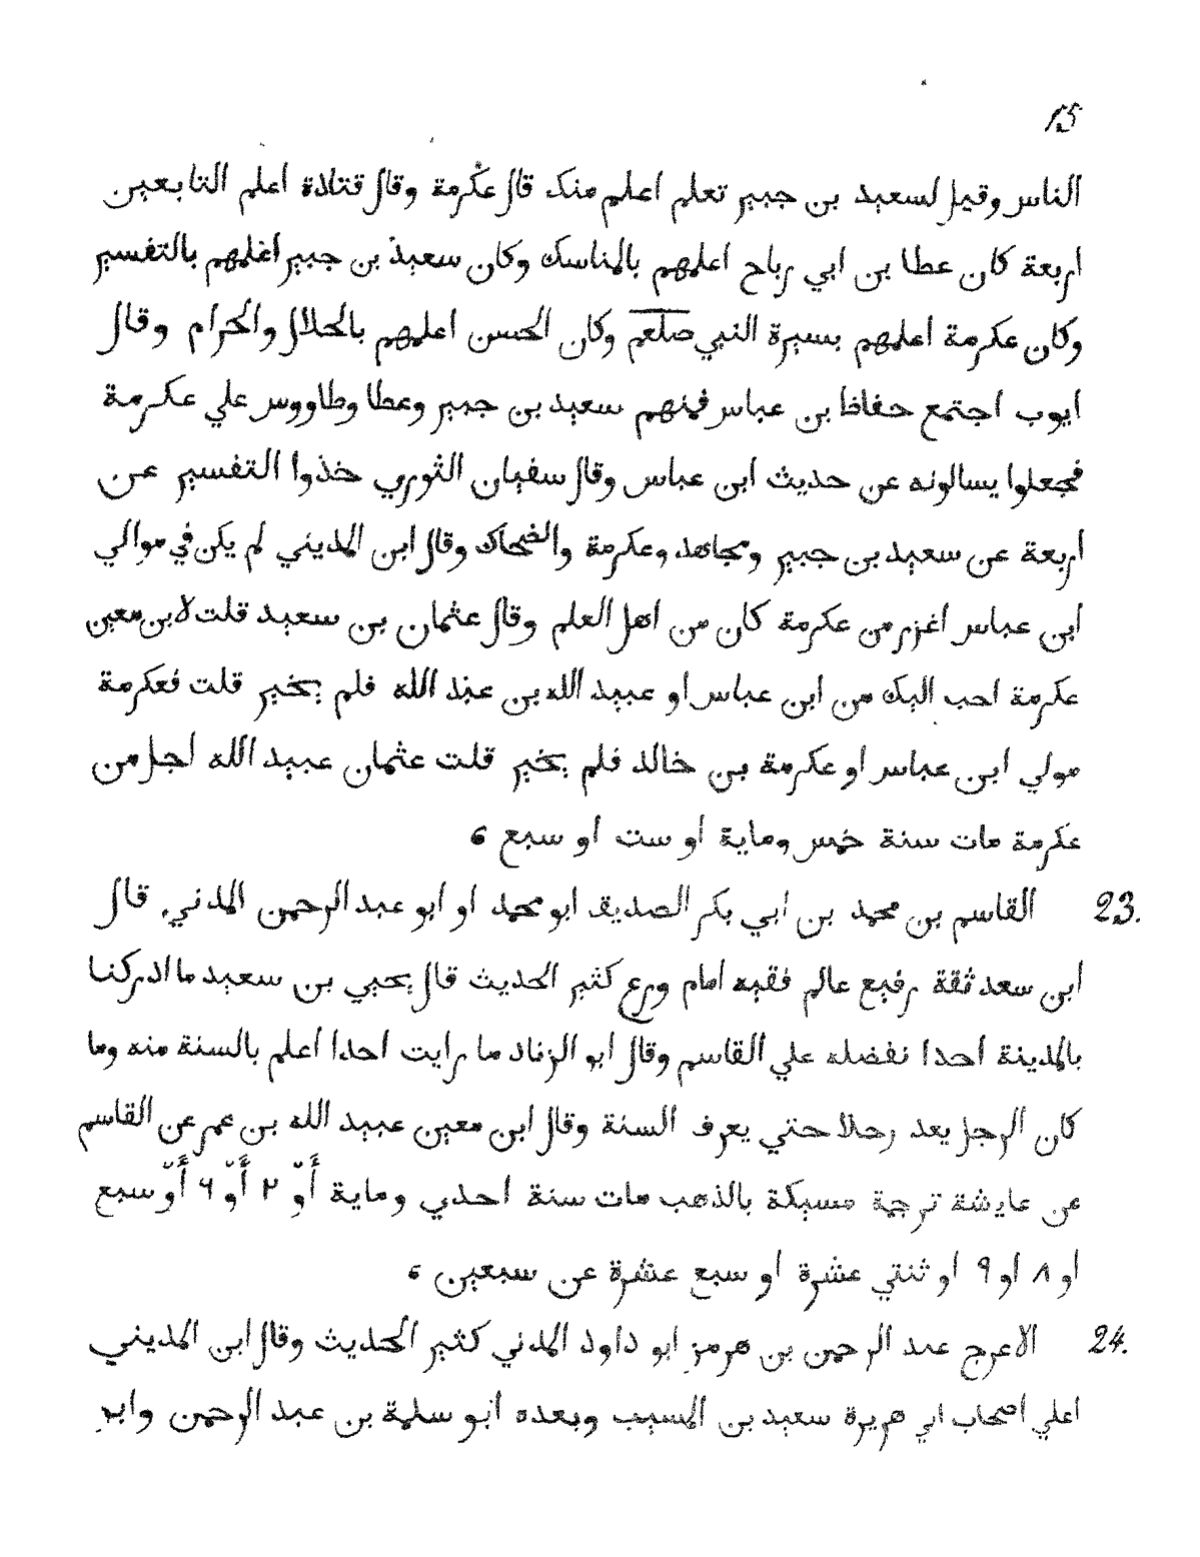 15
الناس وقيل لسعيد بن جبير تعلم اعلم منك قال عكرمة وقال قتادة اعلم التابعين
اربعة كان عطا بن ابي رباح اعلمهم بالمناسك وكان سعيد بن جبير اعلمهم بالتفسير
وكان عكرمة اعلمهم بسيرة النبي صلعم وكان الحسن اعلمهم بالحلال والحرام وقال
ايوب اجتمع حفاظ بن عباس فمنهم سعيد بن جبير وعطا وطاووس علي عكرمة
فجعلوا يسالونه عن حديث ابن عباس وقال سفيان الثوري خذوا التفسير عن
اربعة عن سعيد بن جبير ومجاهد وعكرمة والضحاك وقال ابن المديني لم يكن في موالي
ابن عباس اغزر من عكرمة كان من اهل العلم وقال عثمان بن سعيد قلت لابن معين
عكرمة احب اليك من ابن عباس او عبيد الله بن عبد الله فلم يخير قلت فعكرمة
مولي ابن عباس او عكرمة بن خالد فلم يخير قلت عثمان عبيد الله اجل من
عكرمة مات سنة خمس وماية او ست او سبع ه
23. القاسم بن محمد بن ابي بكر الصديق ابو محمد او ابو عبد الرحمن المدني قال
ابن سعد ثقة رفيع عالم فقيه امام ورع كثير الحديث قال يحيي بن سعيد ما ادركنا
بالمدينة احدا نفضله علي القاسم وقال ابو الزناد ما رايت احدا اعلم بالسنة منه وما
كان الرجل يعد رجلا حتي يعرف السنة وقال ابن معين عبيد الله بن عمر عن القاسم
عن عايشة ترجمة مسبكة بالذهب مات سنة احدي وماية أَوّ ٢ أَوّ ٦ أَوّ سبع
او ٨ او ٩ او ثنتي عشرة او سبع عشرة عن سبعين ه
24. الاعرج عبد الرحمن بن هرمز ابو داود المدني كثير الحديث وقال ابن المديني
اعلي اصحاب ابي هريرة سعيد بن المسيب وبعده ابو سلمة بن عبد الرحمن وابو